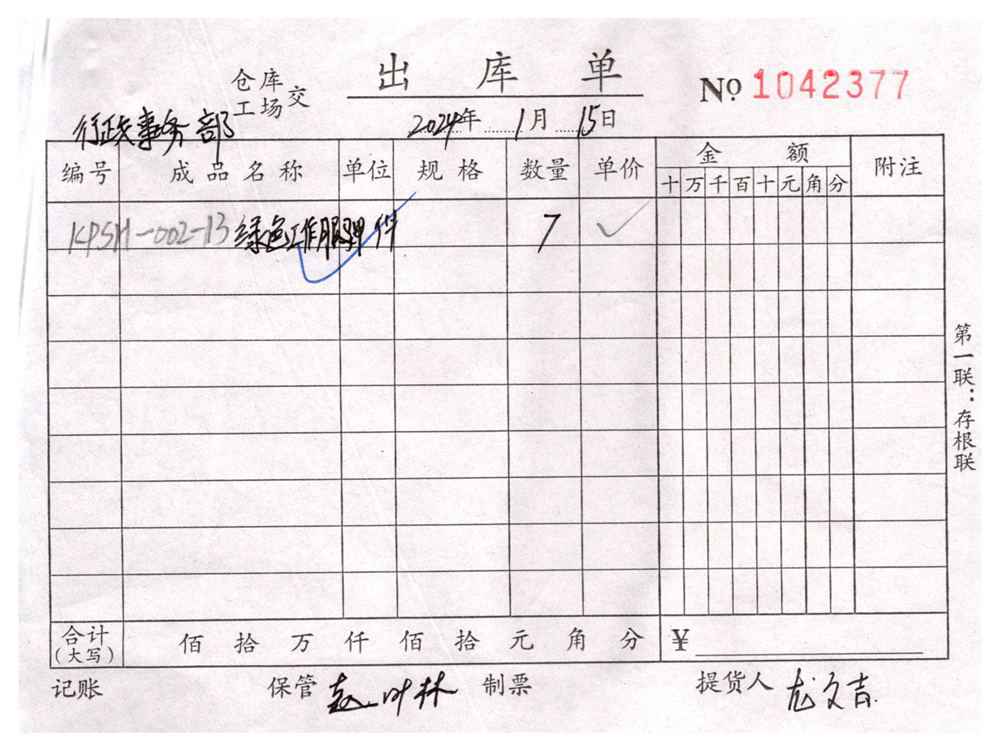 出 库 单
仓库
工场 交
No 1042377
行政事务部
2024年 1月 15日
编号 成品名称 单位 规格 数量 单价 金额 附注
十 万 千 百 十 元 角 分
KPSH-002-13 绿色工作服 件 7
第一联：存根联
合计 佰 拾 万 仟 佰 拾 元 角 分 ¥
(大写)
记账 保管 赵叶林 制票 提货人 龙文吉